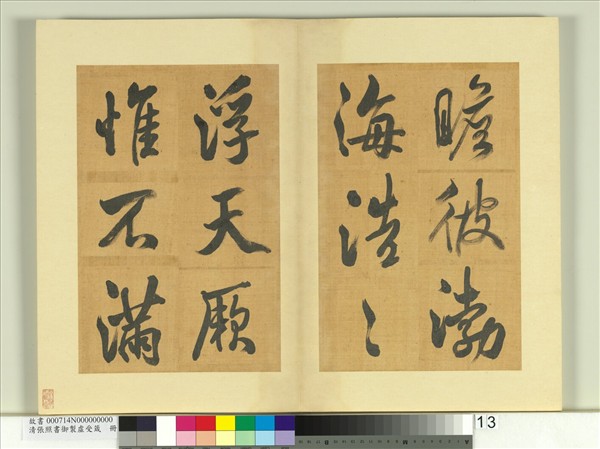 瞻彼渤
海浩〻
浮天厥
惟不滿
故書 000714N000000000
清張照書御製虛受箴 冊
13